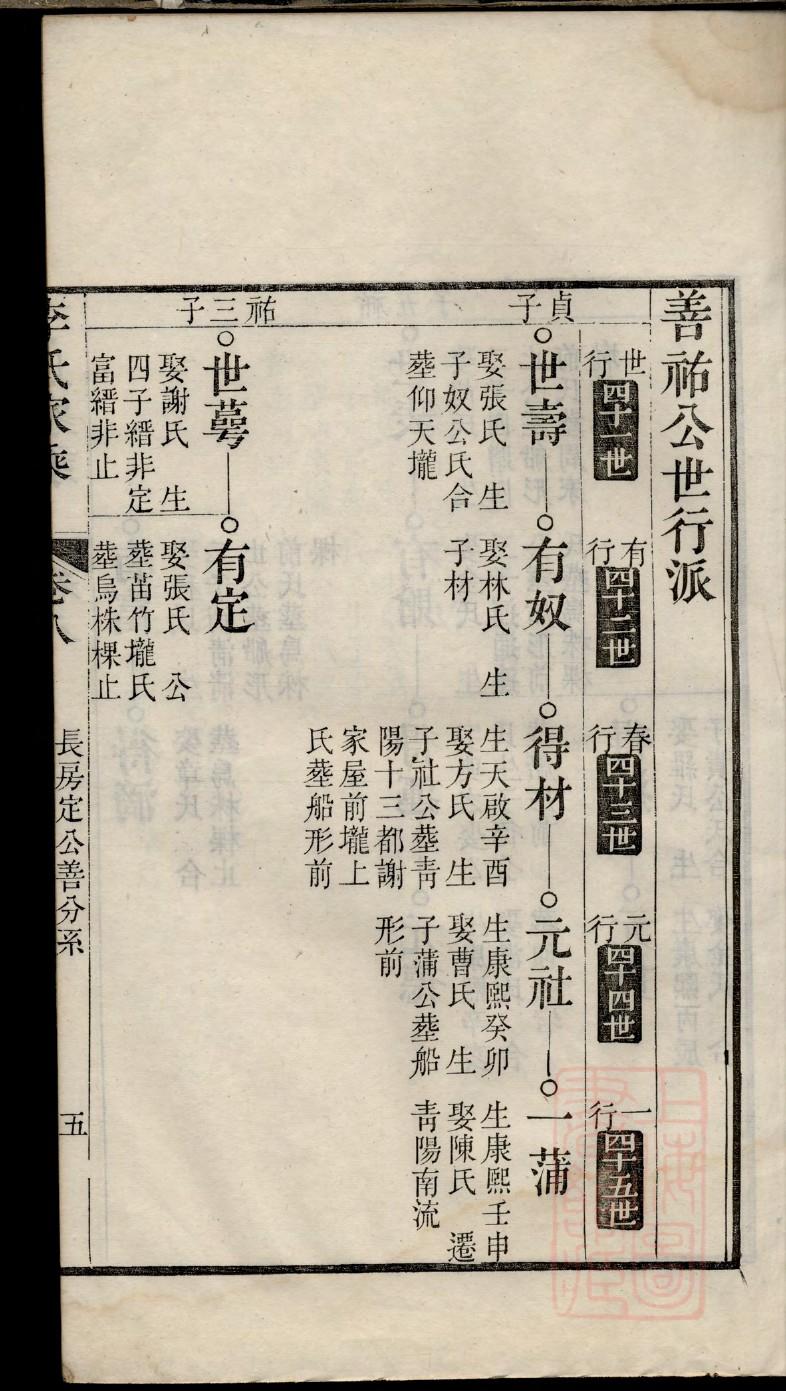 善祐公世行派
世行
四十一世
有行
四十二世
春行
四十三世
元行
四十四世
一行
四十五世
貞子
世壽
娶張氏 生
子奴公氏合
塟仰天壠
有奴
娶林氏 生
子材
得材
生天啟辛酉
娶方氏 生
子社公塟靑
陽十三都謝
家屋前壠上
氏塟船形前
元社
生康熙癸卯
娶曹氏 生
子蒲公塟船
形前
一蒲
生康熙壬申
娶陳氏 遷
靑陽南流
祐三子
世蕚
娶謝氏 生
四子縉非定
富縉非止
有定
娶張氏 公
塟苗竹壠氏
塟烏株棵止
李氏家乘
卷八
長房定公善分系
五